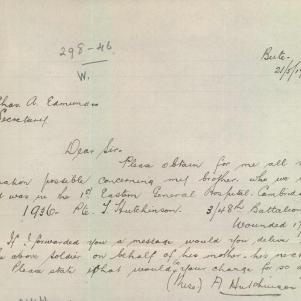 298-46
W.
Bute.
21/5/17
Chas. A. Edmunds
Secretary
Dear Sir.
Please obtain for me all
mation possible concerning my brother, who we
was in the 1st Eastern General Hospital. Cambrid
1936 - Pte. T. Hutchinson. 3/48th Battalion
Wounded 17
If I forwarded you a message would you deliver
above soldier on behalf of his mother, his
Please state what would your charge for so
(Miss) A Hutchinson